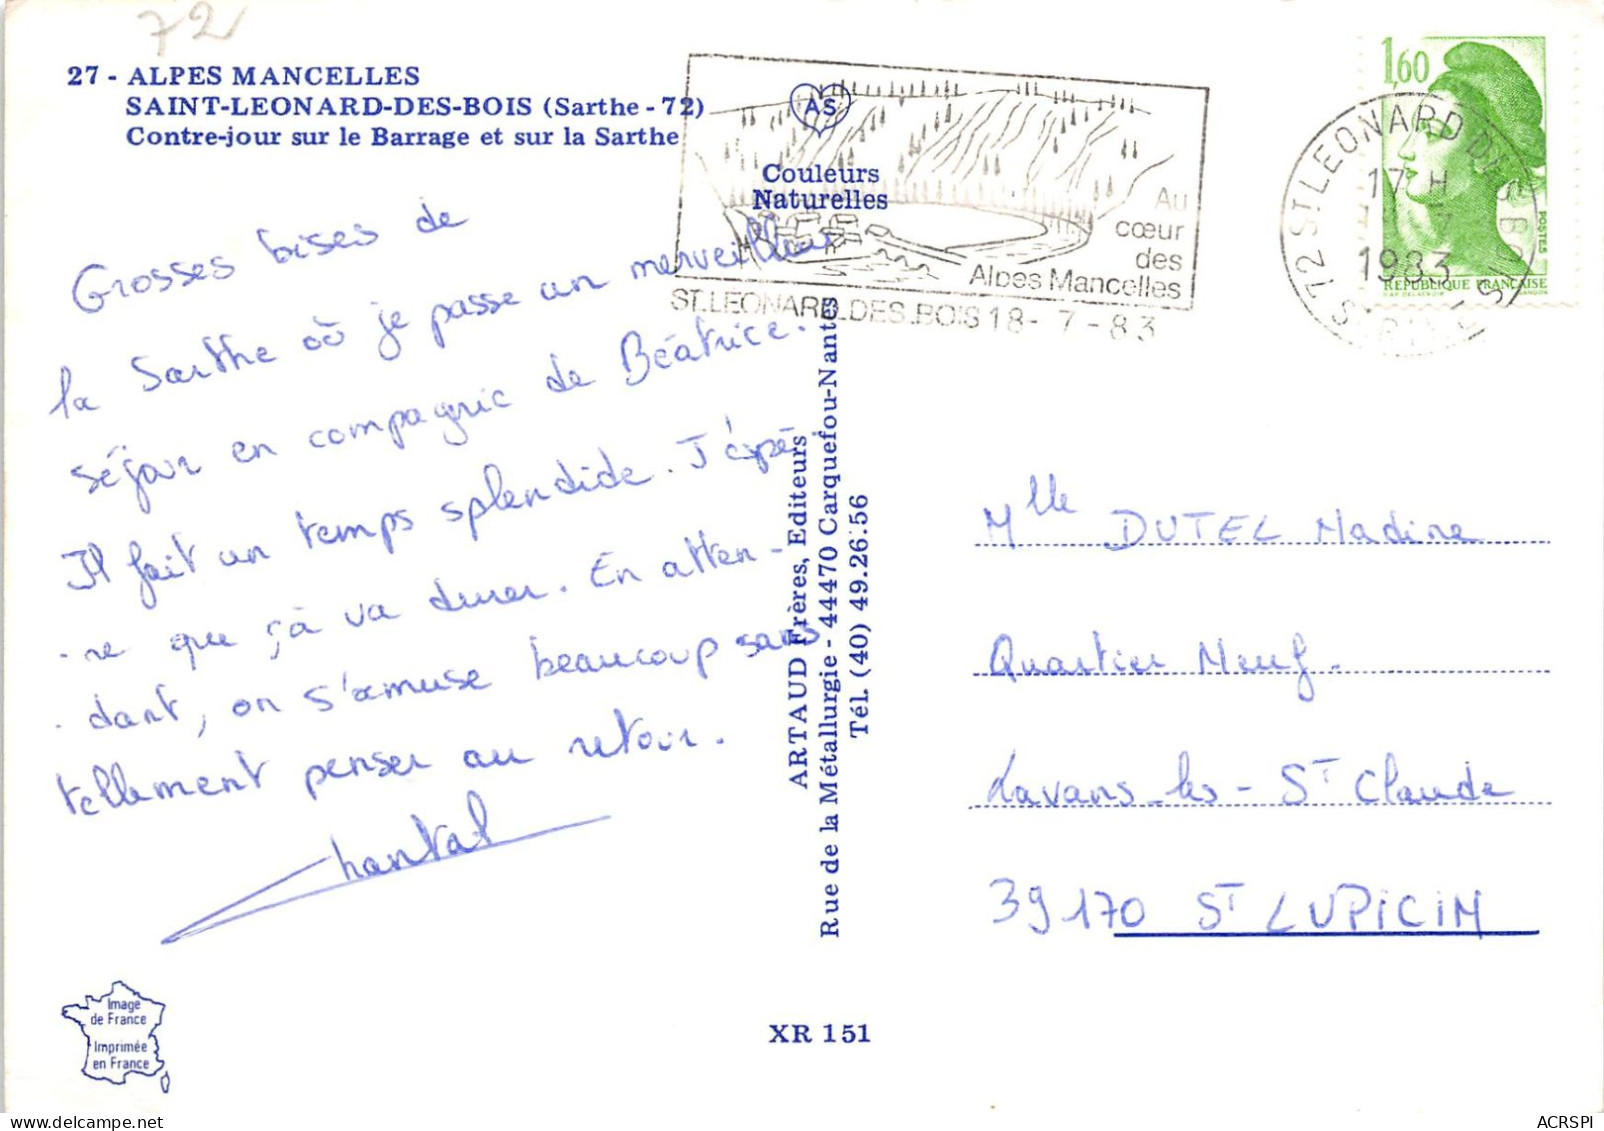 72
27 - ALPES MANCELLES
SAINT-LEONARD-DES-BOIS (Sarthe - 72)
Contre-jour sur le Barrage et sur la Sarthe
AS
Couleurs
Naturelles
Au
cœur
des
Alpes Mancelles
ST.LEONARD.DES.BOIS 18 - 7 - 83
1,60
POSTES
REPUBLIQUE FRANÇAISE
72 ST LEONARD DES BOIS
17 H
1983
Grosses bises de
la Sarthe où je passe un merveilleux
séjour en compagnie de Béatrice.
Il fait un temps splendide. J'espè
-re que çà va durer. En atten -
- dant, on s'amuse beaucoup sans
tellement penser au retour.
Chantal
ARTAUD Frères, Editeurs
Rue de la Métallurgie - 44470 Carquefou-Nantes
Tél. (40) 49.26.56
Mlle DUTEL Nadine
Quartier Neuf.
Lavans-les-St Claude
39170 St LUPICIN
Image
de France
Imprimée
en France
XR 151
ACRSPI